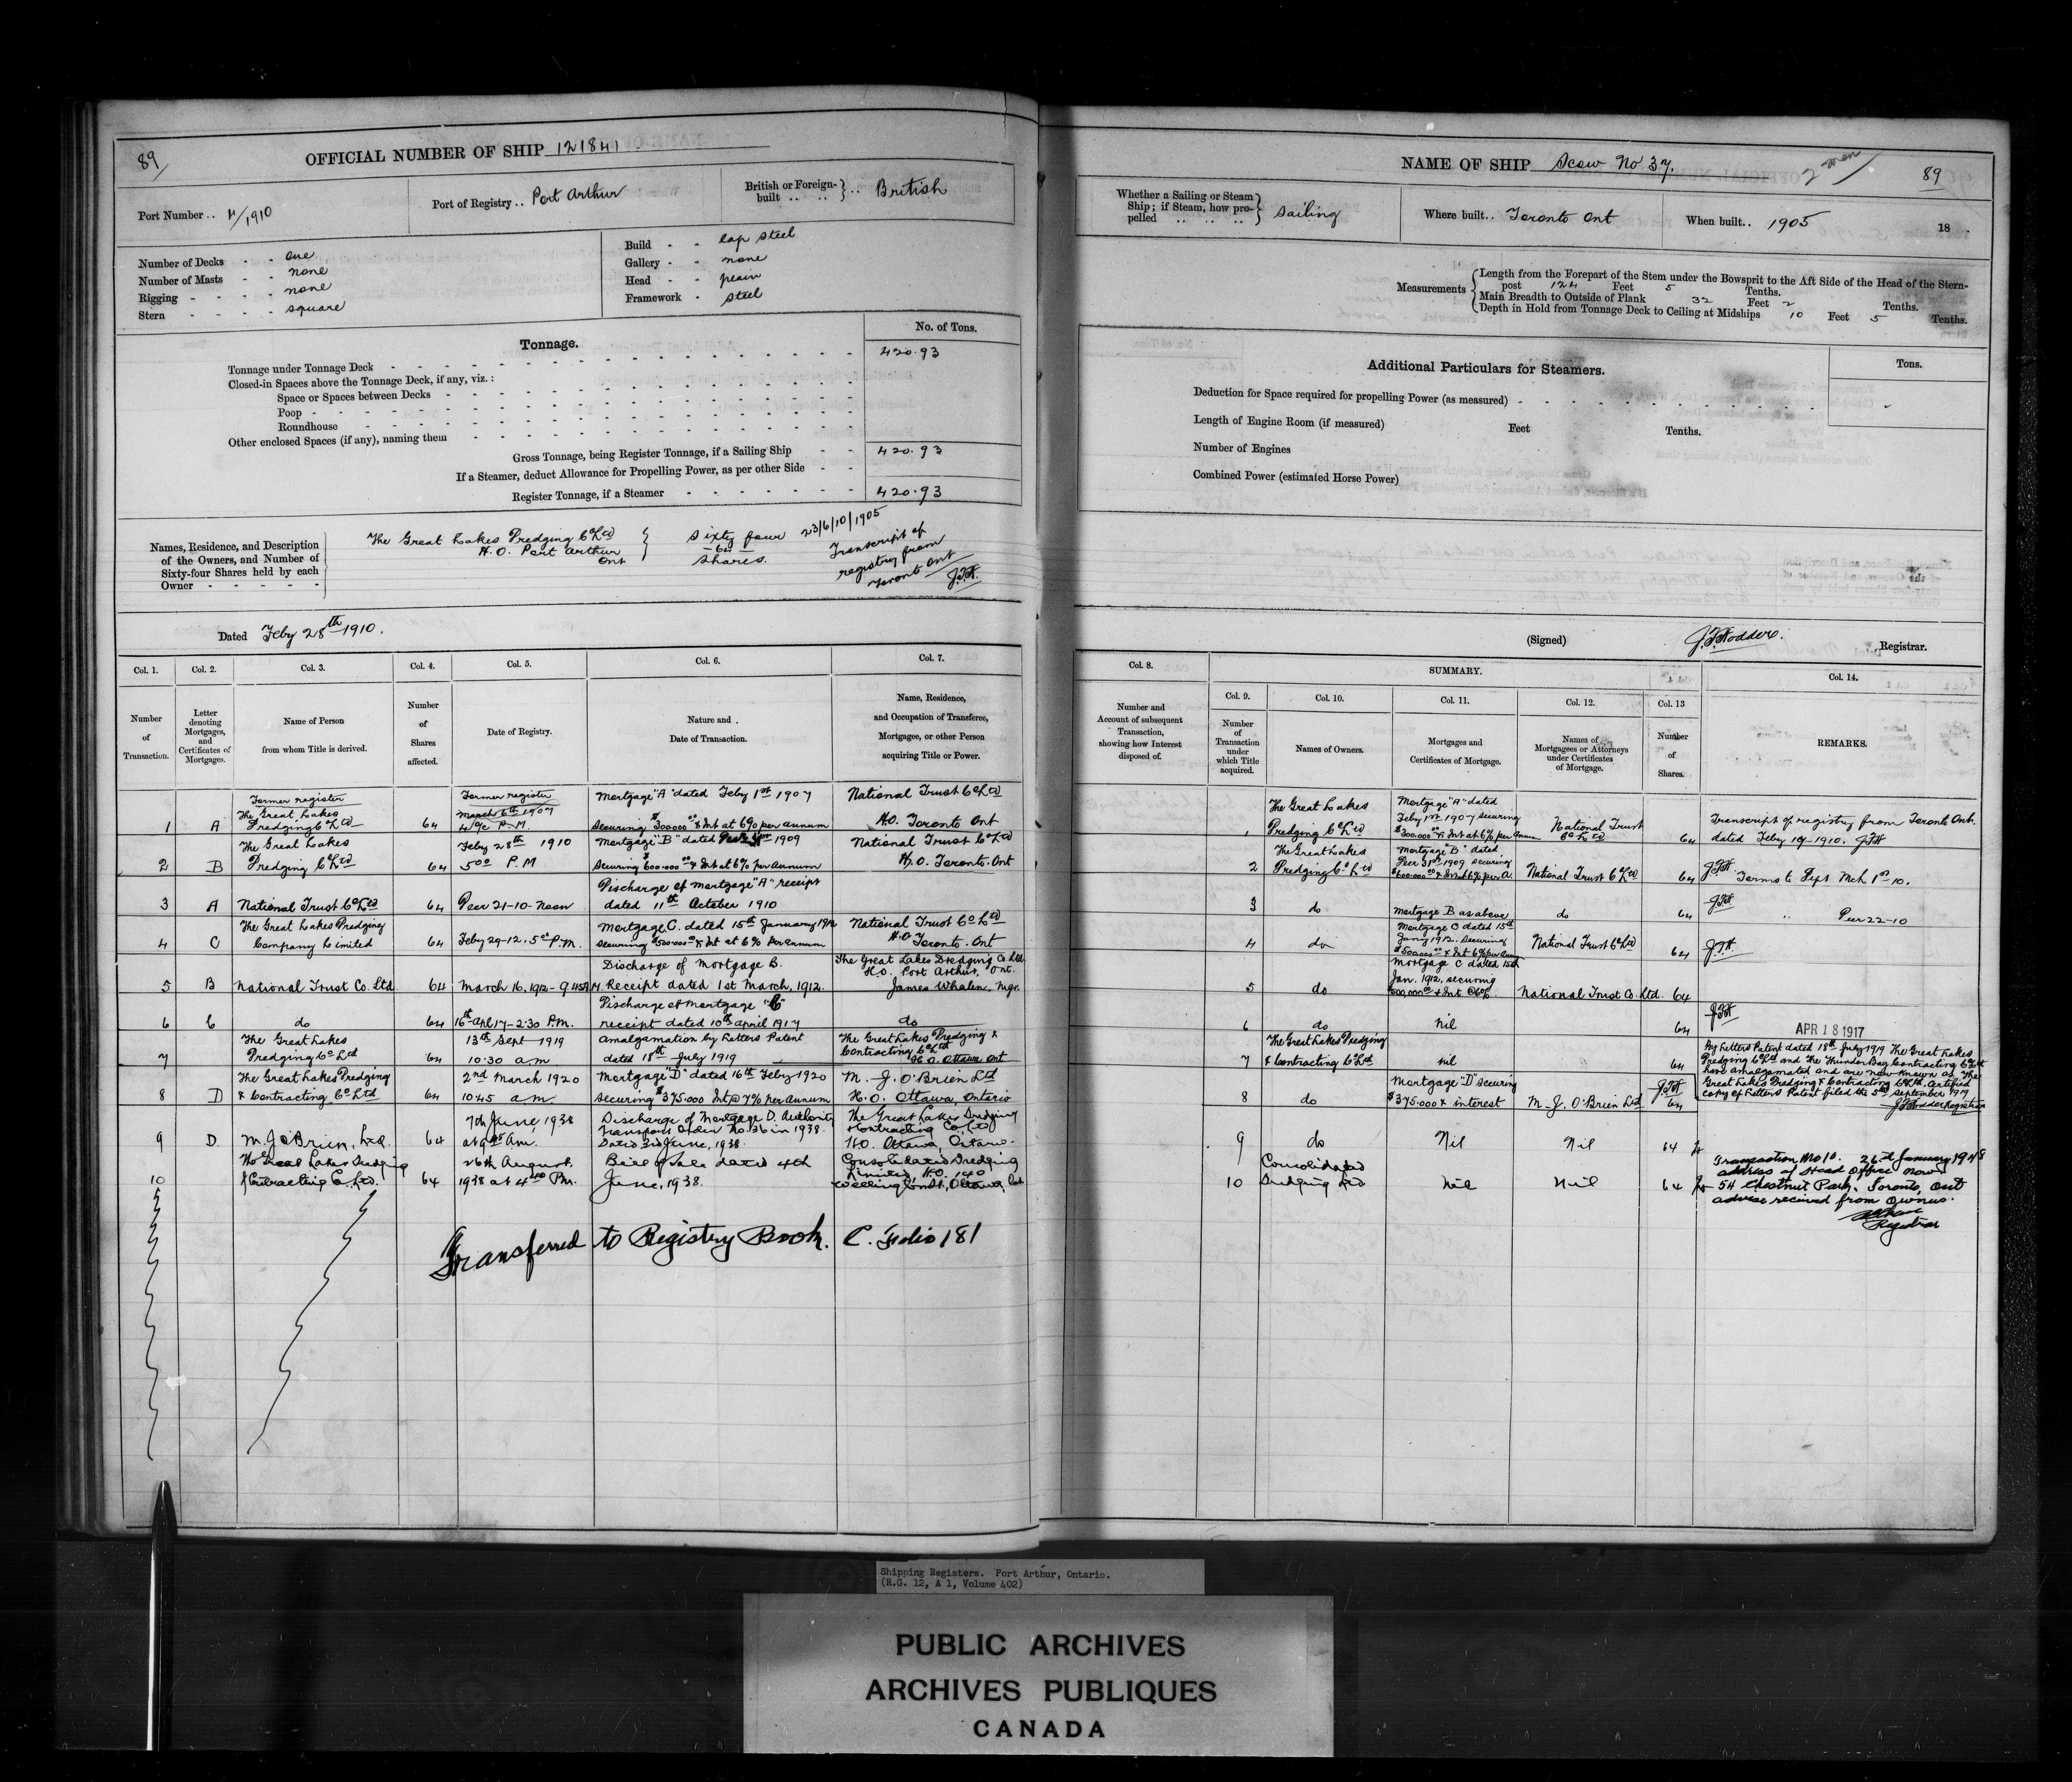 89
OFFICIAL NUMBER OF SHIP 121841
Port Number .. 4/1910
Port of Registry .. Port Arthur
British or Foreign-built .. .. British
Number of Decks - - one
Number of Masts - - none
Rigging - - - - none
Stern - - - - square
Build - - lap steel
Gallery - - none
Head - - plain
Framework - steel
Tonnage.
No. of Tons.
Tonnage under Tonnage Deck 420.93
Closed-in Spaces above the Tonnage Deck, if any, viz. :
Space or Spaces between Decks
Poop
Roundhouse
Other enclosed Spaces (if any), naming them
Gross Tonnage, being Register Tonnage, if a Sailing Ship 420.93
If a Steamer, deduct Allowance for Propelling Power, as per other Side
Register Tonnage, if a Steamer 420.93
Names, Residence, and Description
of the Owners, and Number of
Sixty-four Shares held by each
Owner
The Great Lakes Dredging Co Ltd
H.O. Port Arthur
Ont
Sixty four
-64-
Shares.
23/6/10/1905
Transcript of
registry from
Toronto Ont
Dated Feby 28th 1910.
Col. 1. Col. 2. Col. 3. Col. 4. Col. 5. Col. 6. Col. 7.
Number of Transaction.
Letter denoting Mortgages, and Certificates of Mortgages.
Name of Person from whom Title is derived.
Number of Shares affected.
Date of Registry.
Nature and Date of Transaction.
Name, Residence, and Occupation of Transferee, Mortgagee, or other Person acquiring Title or Power.
Former register
Former register
1 A The Great Lakes Dredging Co Ltd 64 March 6th 1907 P.M. Mortgage "A" dated Feby 1st 1907 Securing $300000.00 & Int at 6% per annum National Trust Co Ltd H.O. Toronto Ont
2 B The Great Lakes Dredging Co Ltd 64 Feby 28th 1910 5.00 P.M Mortgage "B" dated 1909 Securing $600.000.00 & Int at 6% per Annum National Trust Co Ltd H.O. Toronto. Ont
3 A National Trust Co Ltd 64 Decr 21-10-Noon Discharge of Mortgage "A" receipt dated 11th October 1910
4 C The Great Lakes Dredging Company Limited 64 Feby 29-12. 5.00 P.M. Mortgage C. dated 15th January 1912 Securing $500.000.00 & Int at 6% per annum National Trust Co Ltd H.O Toronto. Ont
5 B National Trust Co. Ltd 64 March 16, 1912 - 9.45 A.M. Discharge of Mortgage B. Receipt dated 1st March, 1912. The Great Lakes Dredging Co. Ltd H.O. Port Arthur, Ont. James Whalen, Mgr.
6 C do 64 16th Apl 17 - 2:30 P.M. Discharge of Mortgage "C" receipt dated 10th April 1917 do
7 The Great Lakes Dredging Co Ltd 64 13th Sept 1919 10.30 am Amalgamation by Letters Patent dated 18th July 1919 The Great Lakes Dredging & Contracting Co Ltd H.O. Ottawa Ont
8 D The Great Lakes Dredging & Contracting Co Ltd 64 2nd March 1920 10.45 am Mortgage "D" dated 16th Feby 1920 Securing $375.000 Int @ 7% per Annum M. J. O'Brien Ltd H.O. Ottawa, Ontario
9 D. M. J. O'Brien, Ltd. 64 7th June, 1938 at 9.45 Am. Discharge of Mortgage D. Authority Transport Order No. 36 in 1938. Dated 3rd June, 1938. The Great Lakes Dredging & Contracting Co Ltd H.O. Ottawa, Ontario.
10 The Great Lakes Dredging & Contracting Co. Ltd. 64 26th August. 1938 at 4.00 Pm. Bill of Sale dated 4th June, 1938. Consolidated Dredging Limited, H.O. 140 Wellington St, Ottawa, Ont
Transferred to Registry Book. C. Folio 181
NAME OF SHIP Scow No 37.
2 men
89
Whether a Sailing or Steam Ship; if Steam, how propelled Sailing
Where built.. Toronto Ont
When built.. 1905
18
Measurements
Length from the Forepart of the Stem under the Bowsprit to the Aft Side of the Head of the Stern-
post 124 Feet 5 Tenths.
Main Breadth to Outside of Plank 32 Feet 2 Tenths.
Depth in Hold from Tonnage Deck to Ceiling at Midships 10 Feet 5 Tenths.
Additional Particulars for Steamers.
Tons.
Deduction for Space required for propelling Power (as measured)
Length of Engine Room (if measured) Feet Tenths.
Number of Engines
Combined Power (estimated Horse Power)
(Signed) J.F. Hodder. Registrar.
Col. 8. SUMMARY. Col. 14.
Col. 9. Col. 10. Col. 11. Col. 12. Col. 13
Number and Account of subsequent Transaction, showing how Interest disposed of.
Number of Transaction under which Title acquired.
Names of Owners.
Mortgages and Certificates of Mortgage.
Names of Mortgagees or Attorneys under Certificates of Mortgage.
Number of Shares.
REMARKS.
1 The Great Lakes Dredging Co Ltd Mortgage "A" dated Feby 1st 1907 securing $300.000.00 & Int at 6% per Annum National Trust Co Ltd 64 Transcript of registry from Toronto Ont. dated Feby 19-1910.
2 The Great Lakes Dredging Co Ltd Mortgage "B" dated Decr 31st 1909 securing $600.000.00 & Int at 6% per A National Trust Co Ltd 64 Forms to Dept Mch 1st 10.
3 do Mortgage B as above do 64 " Decr 22-10
4 do Mortgage C dated 15th Jany 1912. Securing $500.000.00 & Int 6% per Ann National Trust Co Ltd 64
5 do Mortgage C dated 15th Jan. 1912, securing $500,000.00 & Int @ 6%. National Trust Co. Ltd. 64
6 do nil 64 APR 18 1917
7 The Great Lakes Dredging & Contracting Co Ltd nil 64
By Letters Patent dated 18th July 1919 The Great Lakes
Dredging Co Ltd and The Thunder Bay Contracting Co Ltd
have amalgamated and are now known as The
Great Lakes Dredging & Contracting Co Ltd. Certified
copy of Letters Patent filed the 5th September 1919
J.F. Hodder Registrar
8 do Mortgage "D" securing $375.000 & interest M. J. O'Brien Ltd 64
9 do Nil Nil 64
10 Consolidated Dredging Ltd Nil Nil 64
Transaction No 10. 26th January 1948
address of Head Office now
54 Chestnut Park. Toronto, Ont
advise received from Owners.
Registrar
Shipping Registers. Port Arthur, Ontario.
(R.G. 12, A 1, Volume 402)
PUBLIC ARCHIVES
ARCHIVES PUBLIQUES
CANADA